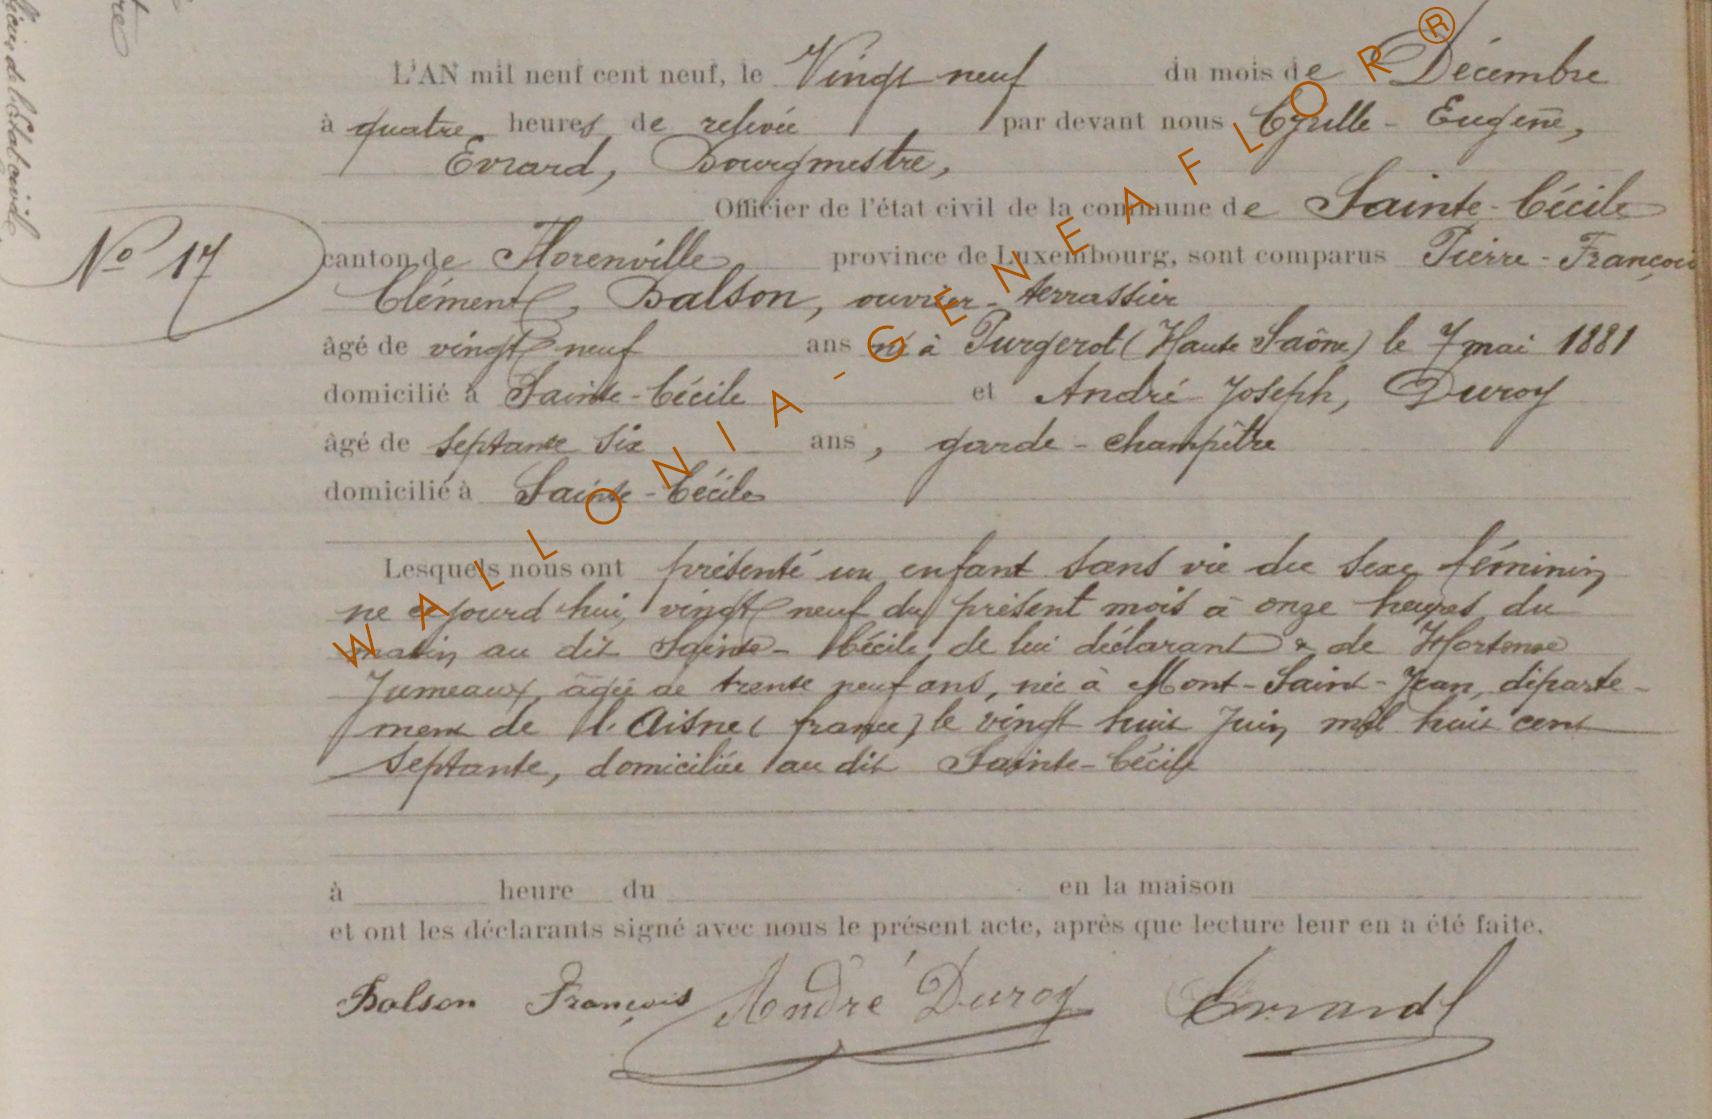 L'AN mil neuf cent neuf, le Vingt neuf du mois de Décembre
à quatre heures de relevée par devant nous Cyrille-Eugène,
Evrard, Bourgmestre,
Officier de l'état civil de la commune de Sainte-Cécile
N° 17
canton de Florenville province de Luxembourg, sont comparus Pierre-François
Clément, Balson, ouvrier-terrassier
âgé de vingt neuf ans né à Purgerot (Haute Saône) le 7 mai 1881
domicilié à Sainte-Cécile et André Joseph, Duroy
âgé de septante six ans, garde-champêtre
domicilié à Sainte-Cécile
Lesquels nous ont présenté un enfant sans vie du sexe féminin
né ce jourd'hui, vingt neuf du présent mois à onze heures du
matin au dit Sainte-Cécile, de lui déclarant & de Hortense
Jumeaux, âgée de trente neuf ans, née à Mont-Saint-Jean, départe-
ment de l'Aisne (france) le vingt huit Juin mil huit cent
septante, domiciliée au dit Sainte-Cécile
à heure du en la maison
et ont les déclarants signé avec nous le présent acte, après que lecture leur en a été faite.
Balson François André Duroy Evrard
WALLONIA-GENEAFLOR®